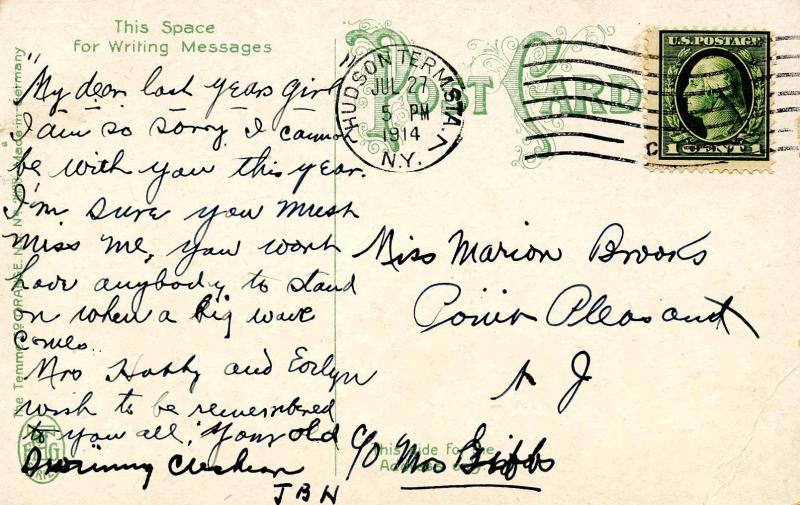 This Space
for Writing Messages
"My dear last years girl"
I am so sorry I cannot
be with you this year.
I'm sure you must
miss me, you wont
have anybody to stand
on when a big wave
comes..
Mrs Hobby and Evelyn
wish to be remembered
to you all, Your old
Swimmy Cushion
JBH
POST CARD
HUDSON TERM. STA.
JUL 27
5 PM
1914
N.Y.
U.S. POSTAGE
1 CENT 1
Miss Marion Brooks
Point Pleasant
N J
C/O Mrs Gibbs
This Side for the
Made in Germany